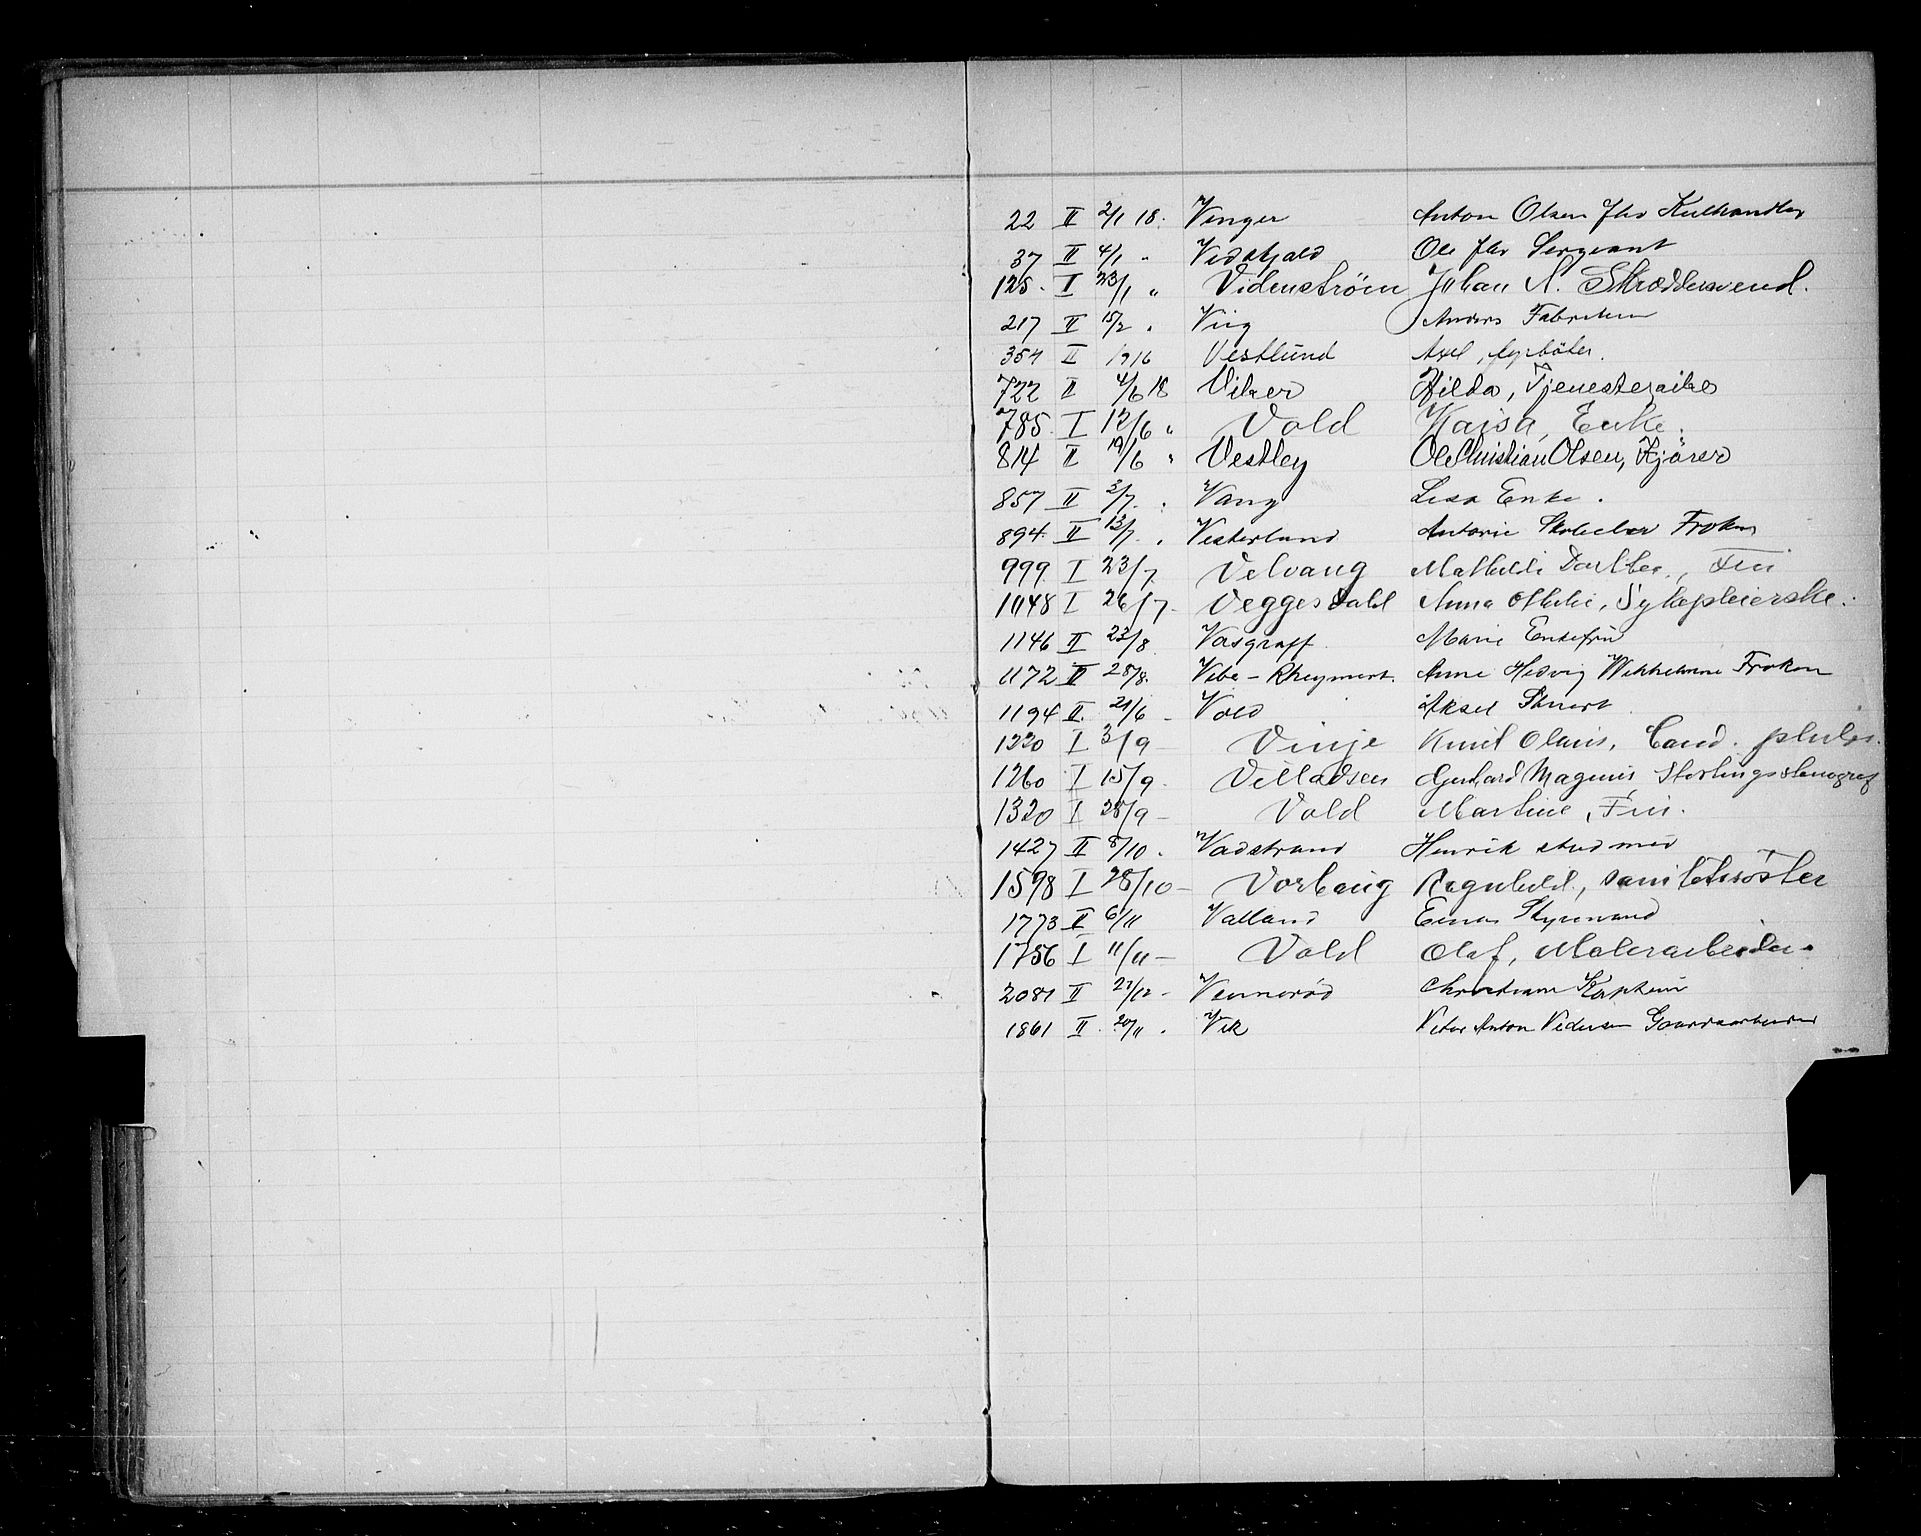 22 II 2/1 18. Vinger Anton Olsen fhv Kulhandler
37 II 4/1 " Vidskjald Ole fhv Sergeant
125. I 23/1 " Videnström Johan N. Skræddersvend.
217 II 15/2 " Viig Anders
354 II 1916 Vestlund Axel, fyrböter.
722 II 4/6 18 Vilser Hilda, Tjenestepike
785. I 12/6 " Vold Kajsa, Enke.
814 II 19/6 " Vestley Ole Christian Olsen, Kjörer
857 II 3/7. " Vang Lisa Enke.
894. II 13/7. " Vesterlund Antonie Frøken
999. I 23/7. Velvang Mathilde Dorthea, Fru
1048 I 26/7 - Veggesdald Anna Othilie, Sykepleierske.
1146 II 23/8. Vasgraff. Marie Enkefru
1172 II 28/8. Vibe - Anne Hedvig Wilhelmine Frøken
1194 II. 21/6 - Vold Aksel
1220 I 3/9 - Vinje Knut Olaus, Cand. philos.
1260 I 15/9. Villadsen Gerhard Magnus Stortingsstenograf
1320 I 28/9 - Vold Martine, Fru.
1427 II 8/10. Vadstrand Henrik stud med
1598 I 28/10 - Vorbaug Ragnhild, sanitetssöster
1773 II 6/11 Valland Einar Styrmand
1756 I 11/11 - Vold Olaf, Malerarbeider.
2081 II 27/12 - Vennerød Christian Kaptein
1861 II. 20/11. Vik Anton Pedersen Gaardsarbeider